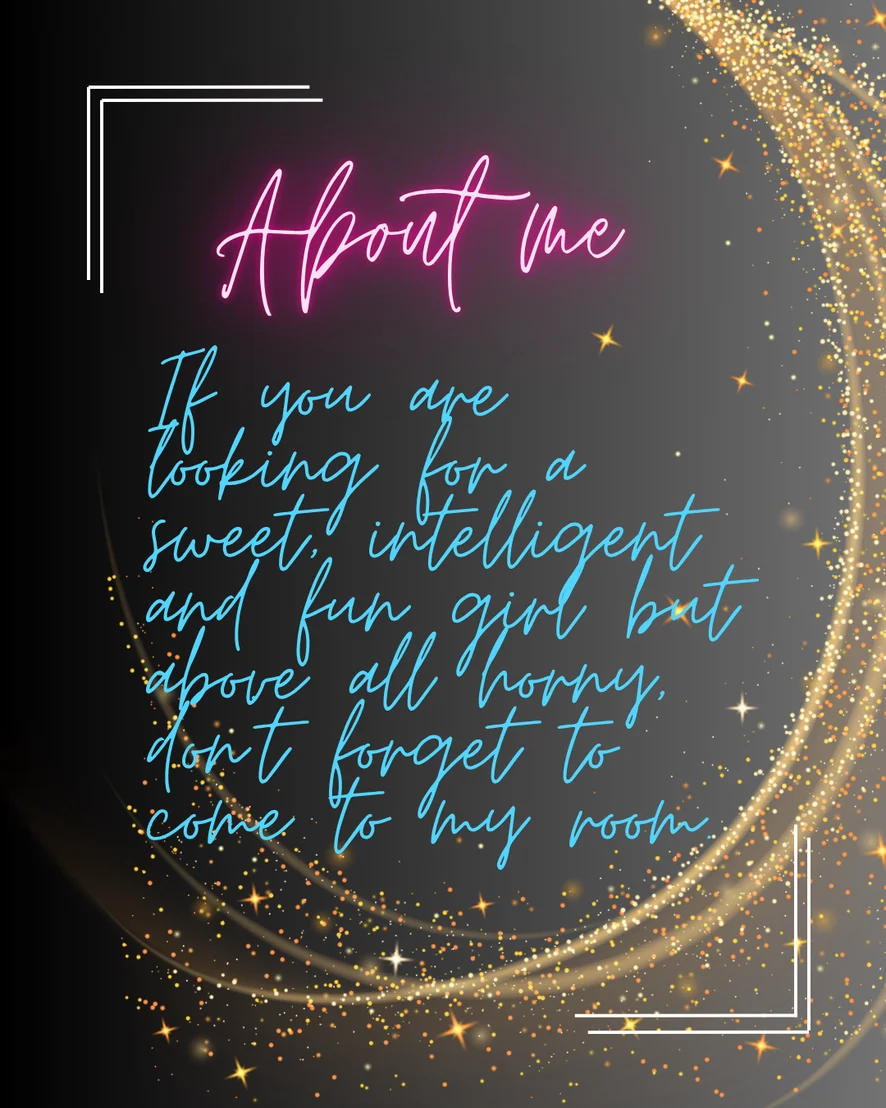 About me
If you are
looking for a
sweet, intelligent
and fun girl but
above all horny,
don't forget to
come to my room.